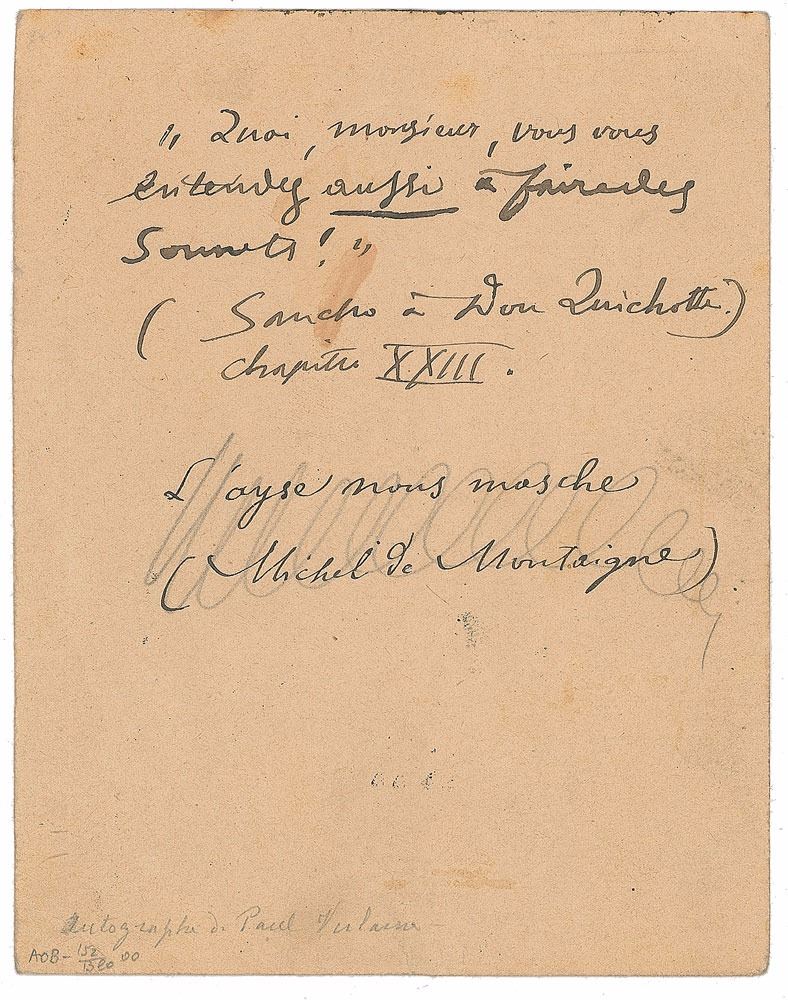 „ Quoi, monsieur, vous vous
entendez aussi à faire des
Sonnets ! „
( Sancho à Don Quichotte.)
chapitre XXIII.
L'ayse nous masche
(Michel de Montaigne)
Autographe de Paul Verlaine
AOB-